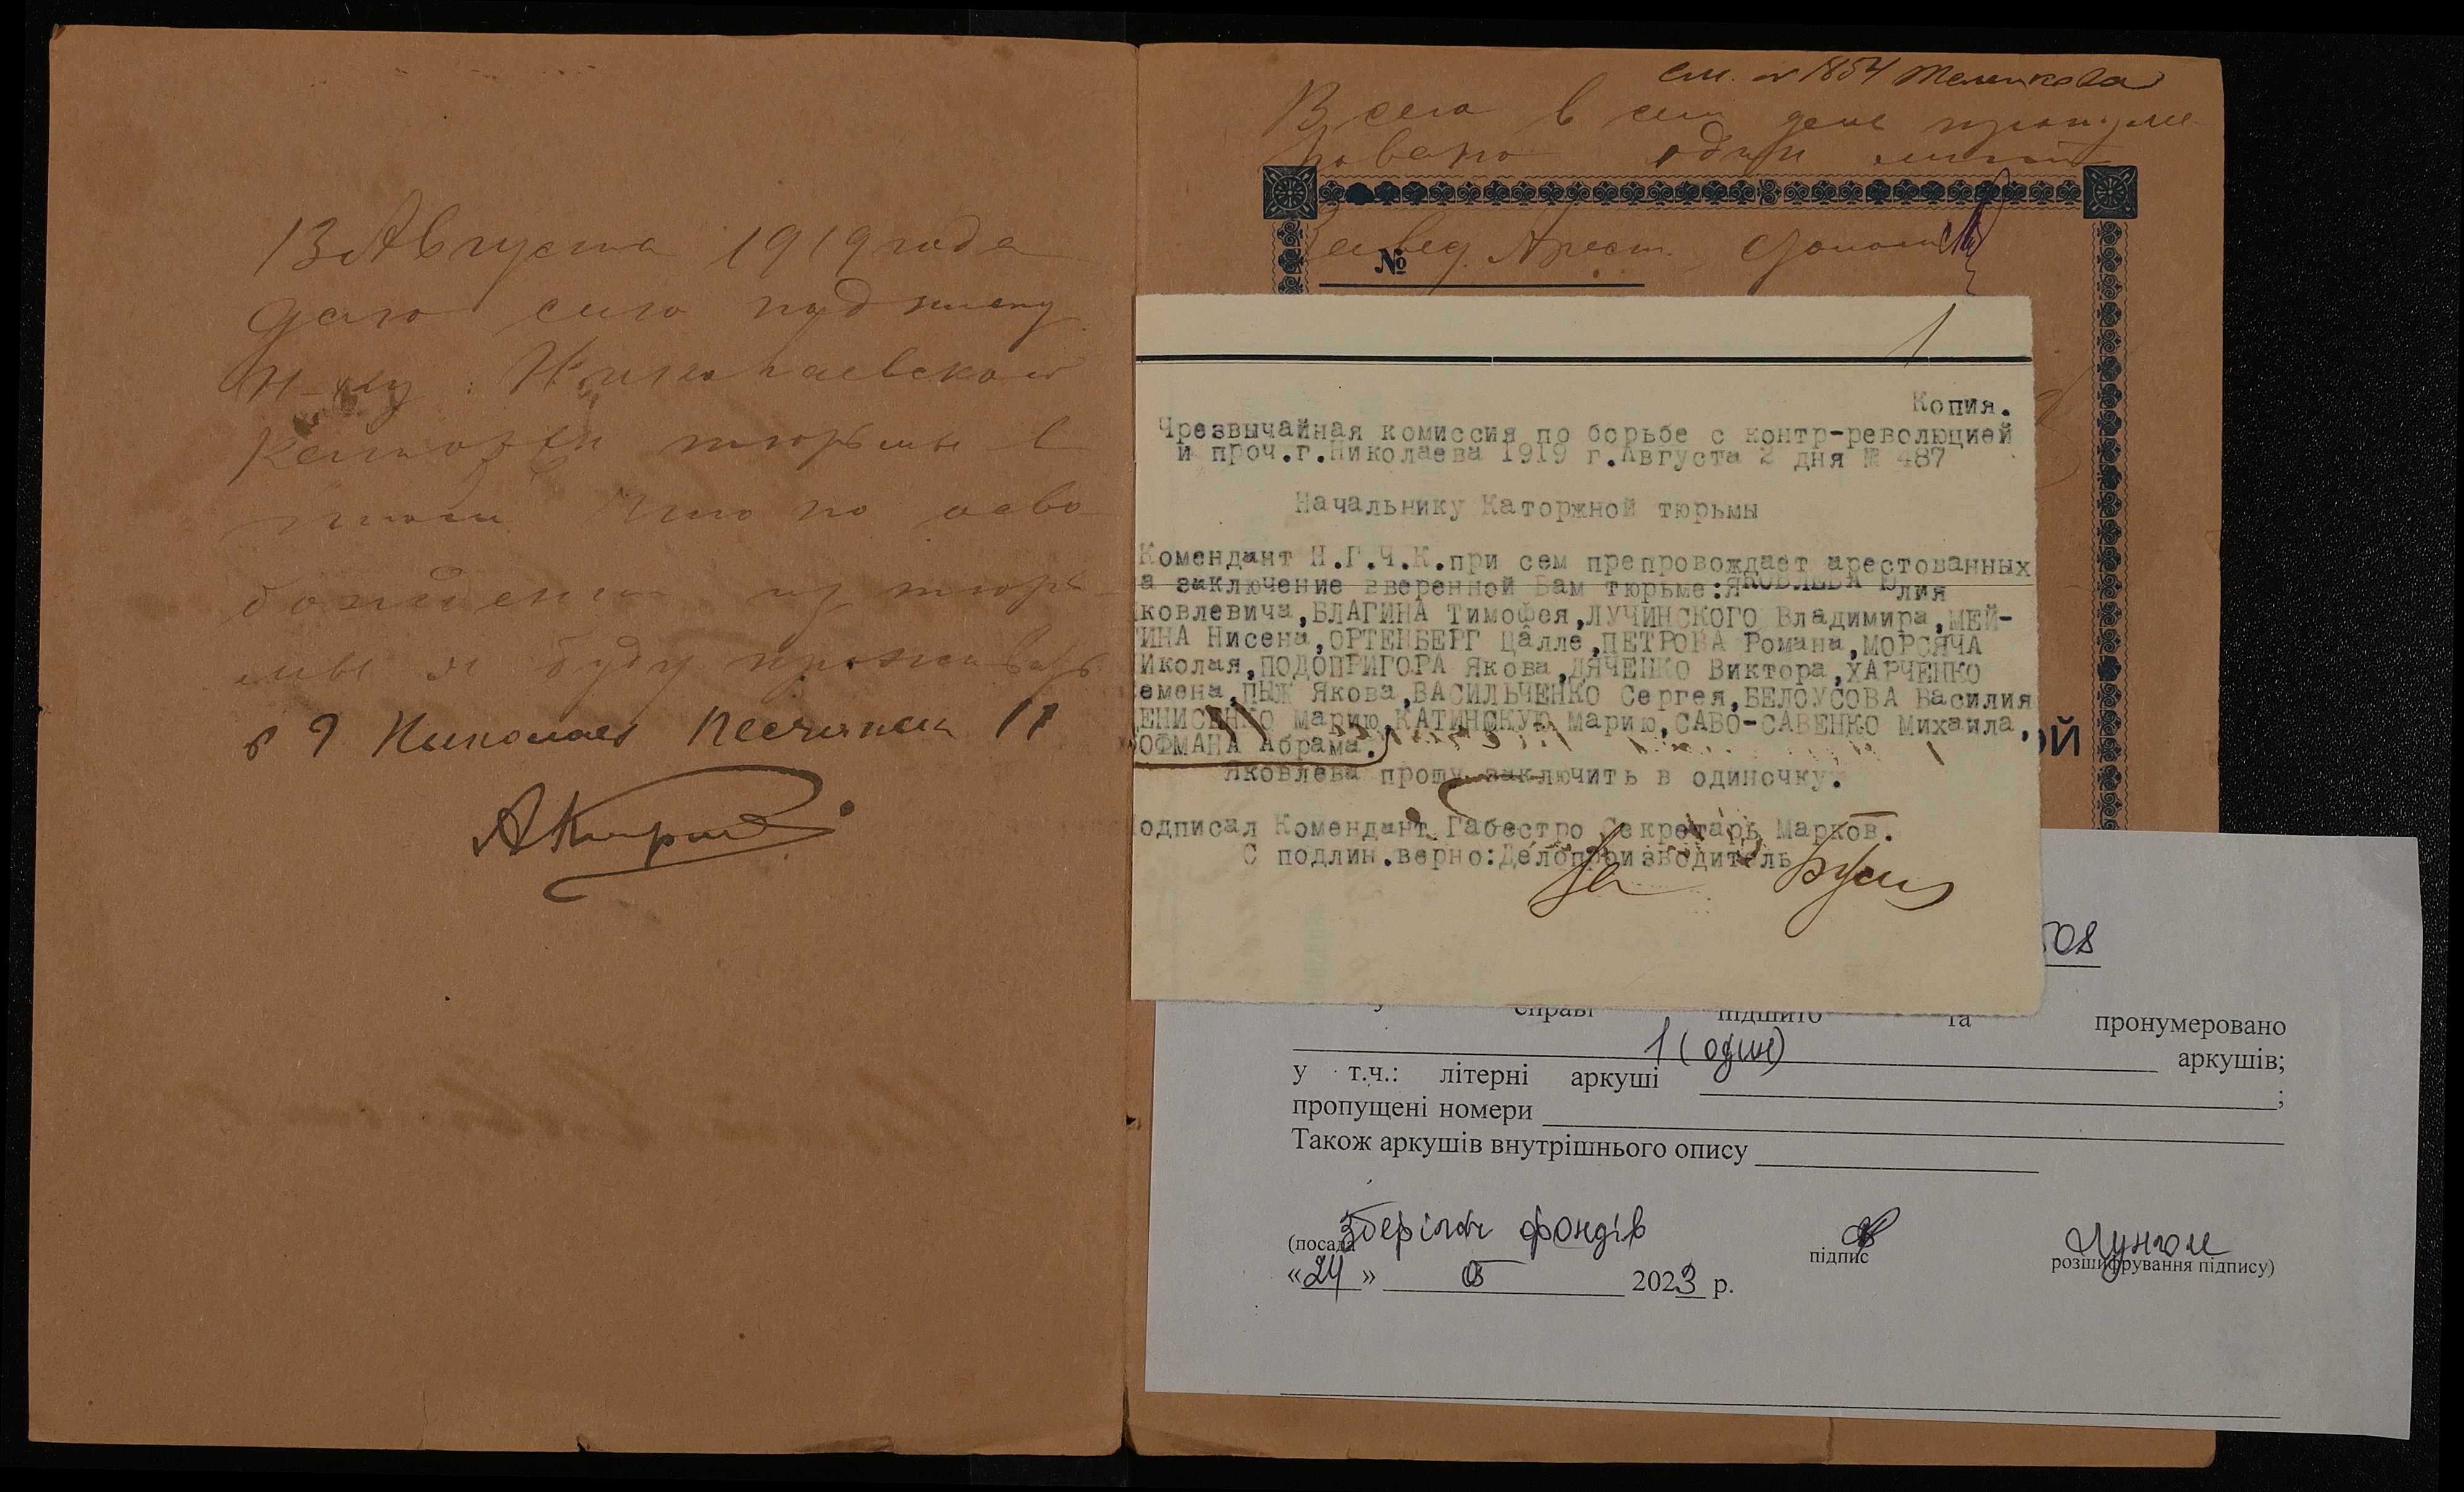 13 Августа 1919 года
даю сию подписку
Н-ку Николаевской
Каторжн тюрьмы в
том что по осво
бождении из тюрь
мы я буду проживать
в г Николаев Песчаная 11
см. № 1854
Всего в сем деле пронуме
ровано один лист
Завед. Арест.
№
1
Копия.
Чрезвычайная комиссия по борьбе с контр-революцией
и проч.г.Николаева 1919 г.Августа 2 дня № 487
Начальнику Каторжной тюрьмы
Комендант Н.Г.Ч.К.при сем препровождает арестованных
а заключение вверенной Вам тюрьме:ЯКОВЛЕВА Юлия
ковлевича,БЛАГИНА Тимофея,ЛУЧИНСКОГО Владимира,МЕЙ-
ГИНА Нисена,ОРТЕНБЕРГ Цалле,ПЕТРОВА Романа,МОРСЯЧА
Николая,ПОДОПРИГОРА Якова,ДЯЧЕНКО Виктора,ХАРЧЕНКО
емена,ПЫЖ Якова,ВАСИЛЬЧЕНКО Сергея,БЕЛОУСОВА Василия
ЕНИСЕНКО Марию,КАТИНСКУЮ Марию,САВО-САВЕНКО Михаила,
ОФМАНА Абрама.
Яковлева прошу заключить в одиночку.
одписал Комендант Габестро Секретарь Марков.
С подлин.верно:Делопроизводитель
За
ОЙ
508
справі підшито та пронумеровано
1 (один) аркушів;
у т.ч.: літерні аркуші ;
пропущені номери
Також аркушів внутрішнього опису
Зберігач фондів
(посада підпис розшифрування підпису)
«24» 05 2023 р.